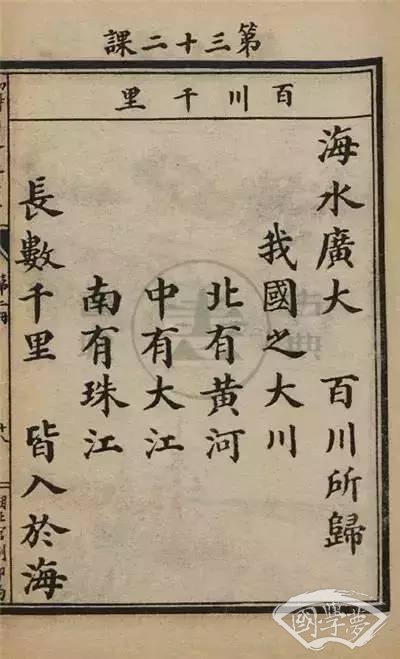 第三十二課
百川千里
海水廣大　百川所歸
我國之大川
北有黃河
中有大江
南有珠江
長數千里　皆入於海
國學夢